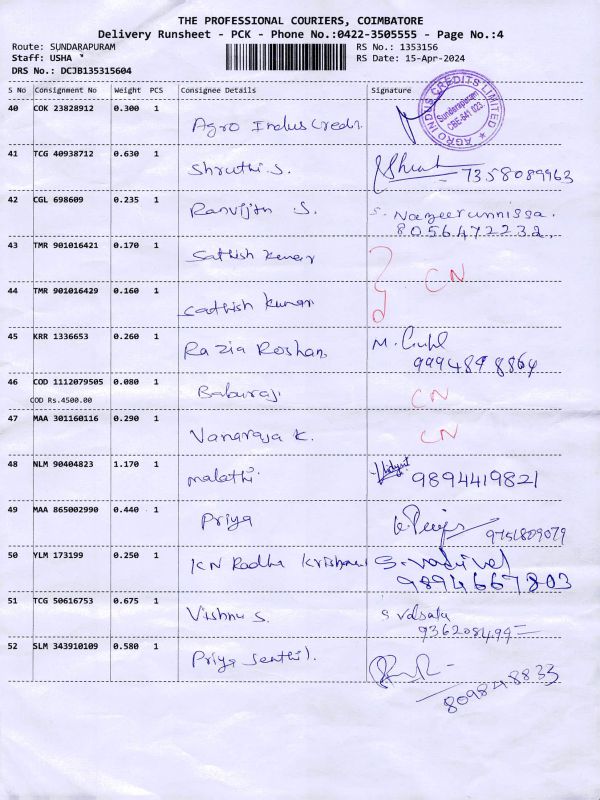 THE PROFESSIONAL COURIERS, COIMBATORE
Delivery Runsheet - PCK - Phone No.:0422-3505555 - Page No.:4
Route: SUNDARAPURAM RS No.: 1353156
Staff: USHA RS Date: 15-Apr-2024
DRS No.: DCJB135315604
S No Consignment No Weight PCS Consignee Details Signature
40 COK 23828912 0.300 1 Agro Indus Credit
AGRO INDUS CREDITS LIMITED
Sundarapuram
CBE-641 023.
41 TCG 40938712 0.630 1 Shruthi.S. 7358089963
42 CGL 698609 0.235 1 Ranvijith S. S. Nazeerunnissa.
8056472232,
43 TMR 901016421 0.170 1 Sathish Kumar
CN
44 TMR 901016429 0.160 1 Sathish Kumar
45 KRR 1336653 0.260 1 Razia Roshan M.
9994898864
46 COD 1112079505 0.080 1 Baburaj CN
COD Rs.4500.00
47 MAA 301160116 0.290 1 Vanaraja K. CN
48 NLM 90404823 1.170 1 malathi 9894419821
49 MAA 865002990 0.440 1 Priya 9751809079
50 YLM 173199 0.250 1 KN Radha Krishnan S. Vadivel
9894667803
51 TCG 50616753 0.675 1 Vishnu S. S Valsala
936208499
52 SLM 343910109 0.580 1 Priya Senthil.
809848833